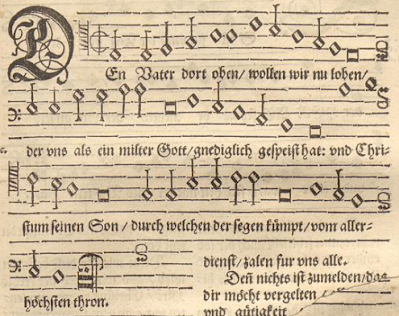 DEn Vater dort oben/ wollen wir nu loben/
der vns als ein milter Gott/ gnediglich gespeist hat: vnd Chri-
stum seinen Son/ durch welchen der segen kümpt/ vom aller-
höchsten thron.
dienst/ zalen fur vns alle.
Deñ nichts ist zumelden/ das
dir möcht vergelten
vnd gütigkeit